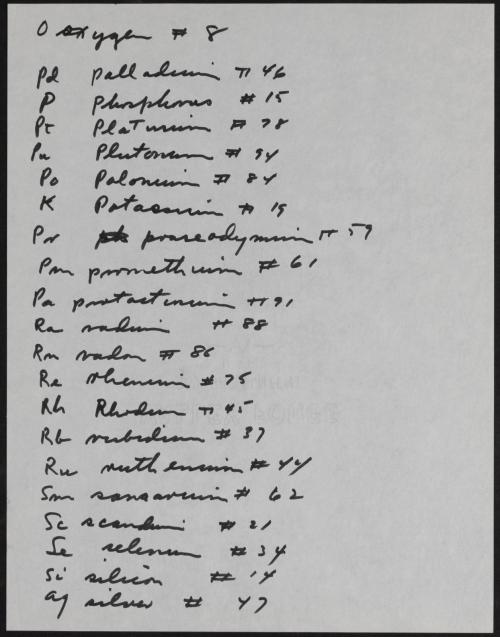 O oxygen # 8
Pd palladium # 46
P Phosphorus # 15
Pt Platinum # 78
Pu Plutonium # 94
Po Polonium # 84
K Potassium # 19
Pr praseodymium # 59
Pm promethium # 61
Pa protactinium # 91
Ra radium # 88
Rn radon # 86
Re rhenium # 75
Rh Rhodium # 45
Rb rubidium # 37
Ru ruthenium # 44
Sm samarium # 62
Sc scandium # 21
Se selenium # 34
Si silicon # 14
Ag silver # 47